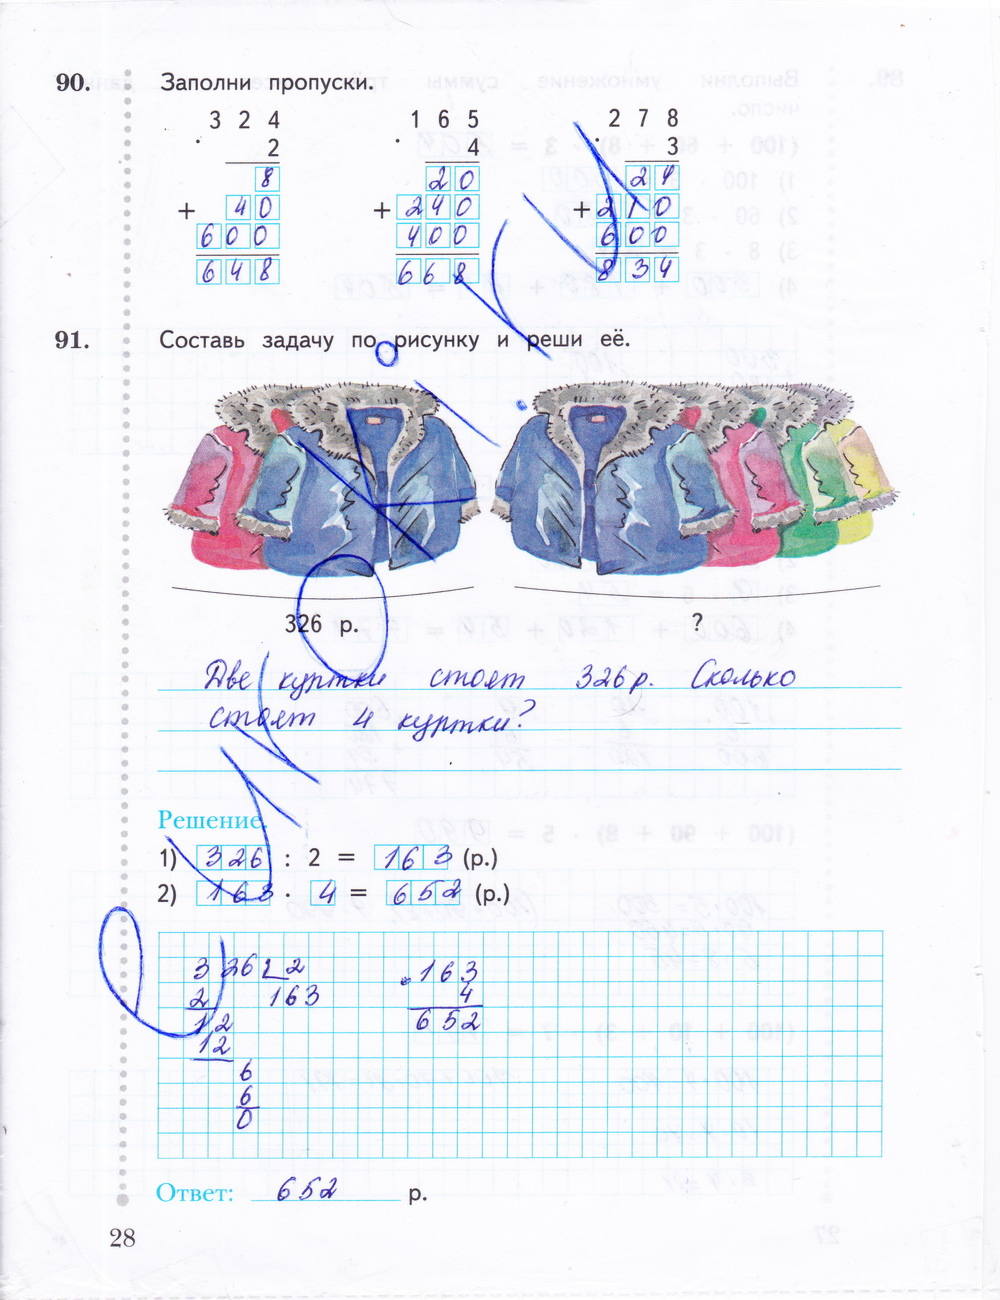 90. Заполни пропуски.
3 2 4   1 6 5   2 7 8
· 2   · 4   · 3
8   2 0   2 4
+ 4 0   + 2 4 0   + 2 1 0
6 0 0   4 0 0   6 0 0
6 4 8   6 6 8   8 3 4
91. Составь задачу по рисунку и реши её.
326 р.   ?
Две куртки стоят 326 р. Сколько
стоят 4 куртки?
Решение.
1) 326 : 2 = 163 (р.)
2) 163 · 4 = 652 (р.)
326 2   · 163
2   163   4
12   652
12
6
6
0
Ответ: 652 р.
28